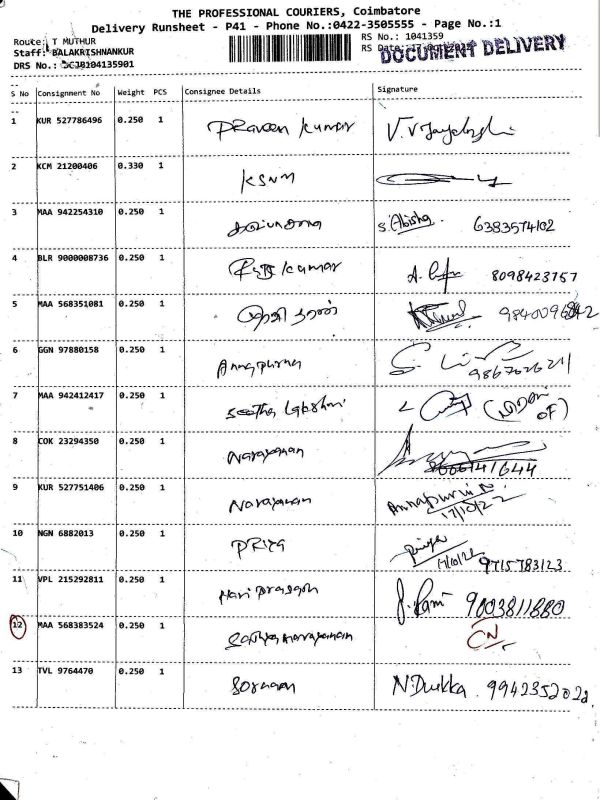 THE PROFESSIONAL COURIERS, Coimbatore
Delivery Runsheet - P41 - Phone No.:0422-3505555 - Page No.:1
Route: T MUTHUR
RS No.: 1041359
Staff: BALAKRISHNANKUR
RS Date:
DOCUMENT DELIVERY
DRS No.:
S No Consignment No Weight PCS Consignee Details Signature
1 KUR 527786496 0.250 1 Praveen Kumar
2 KCM 21200406 0.330 1 KSNM
3 MAA 942254310 0.250 1 S. Abisha 6383574102
4 BLR 9000008736 0.250 1 Kumar 8098423757
5 MAA 568351081 0.250 1
6 GGN 97880158 0.250 1 Annapurna
7 MAA 942412417 0.250 1 Seetha Lakshmi
8 COK 23294350 0.250 1 Narayanan
9 KUR 527751406 0.250 1 Narayanan Annapurni N.
17/10/22
10 NGN 6882013 0.250 1 PRIYA Priya
17/10/22 9715783123
11 VPL 215292811 0.250 1 Hari Prasath 9003811880
12 MAA 568383524 0.250 1 Sathya narayanan CN
13 TVL 9764470 0.250 1 N. Durkka 9942352022